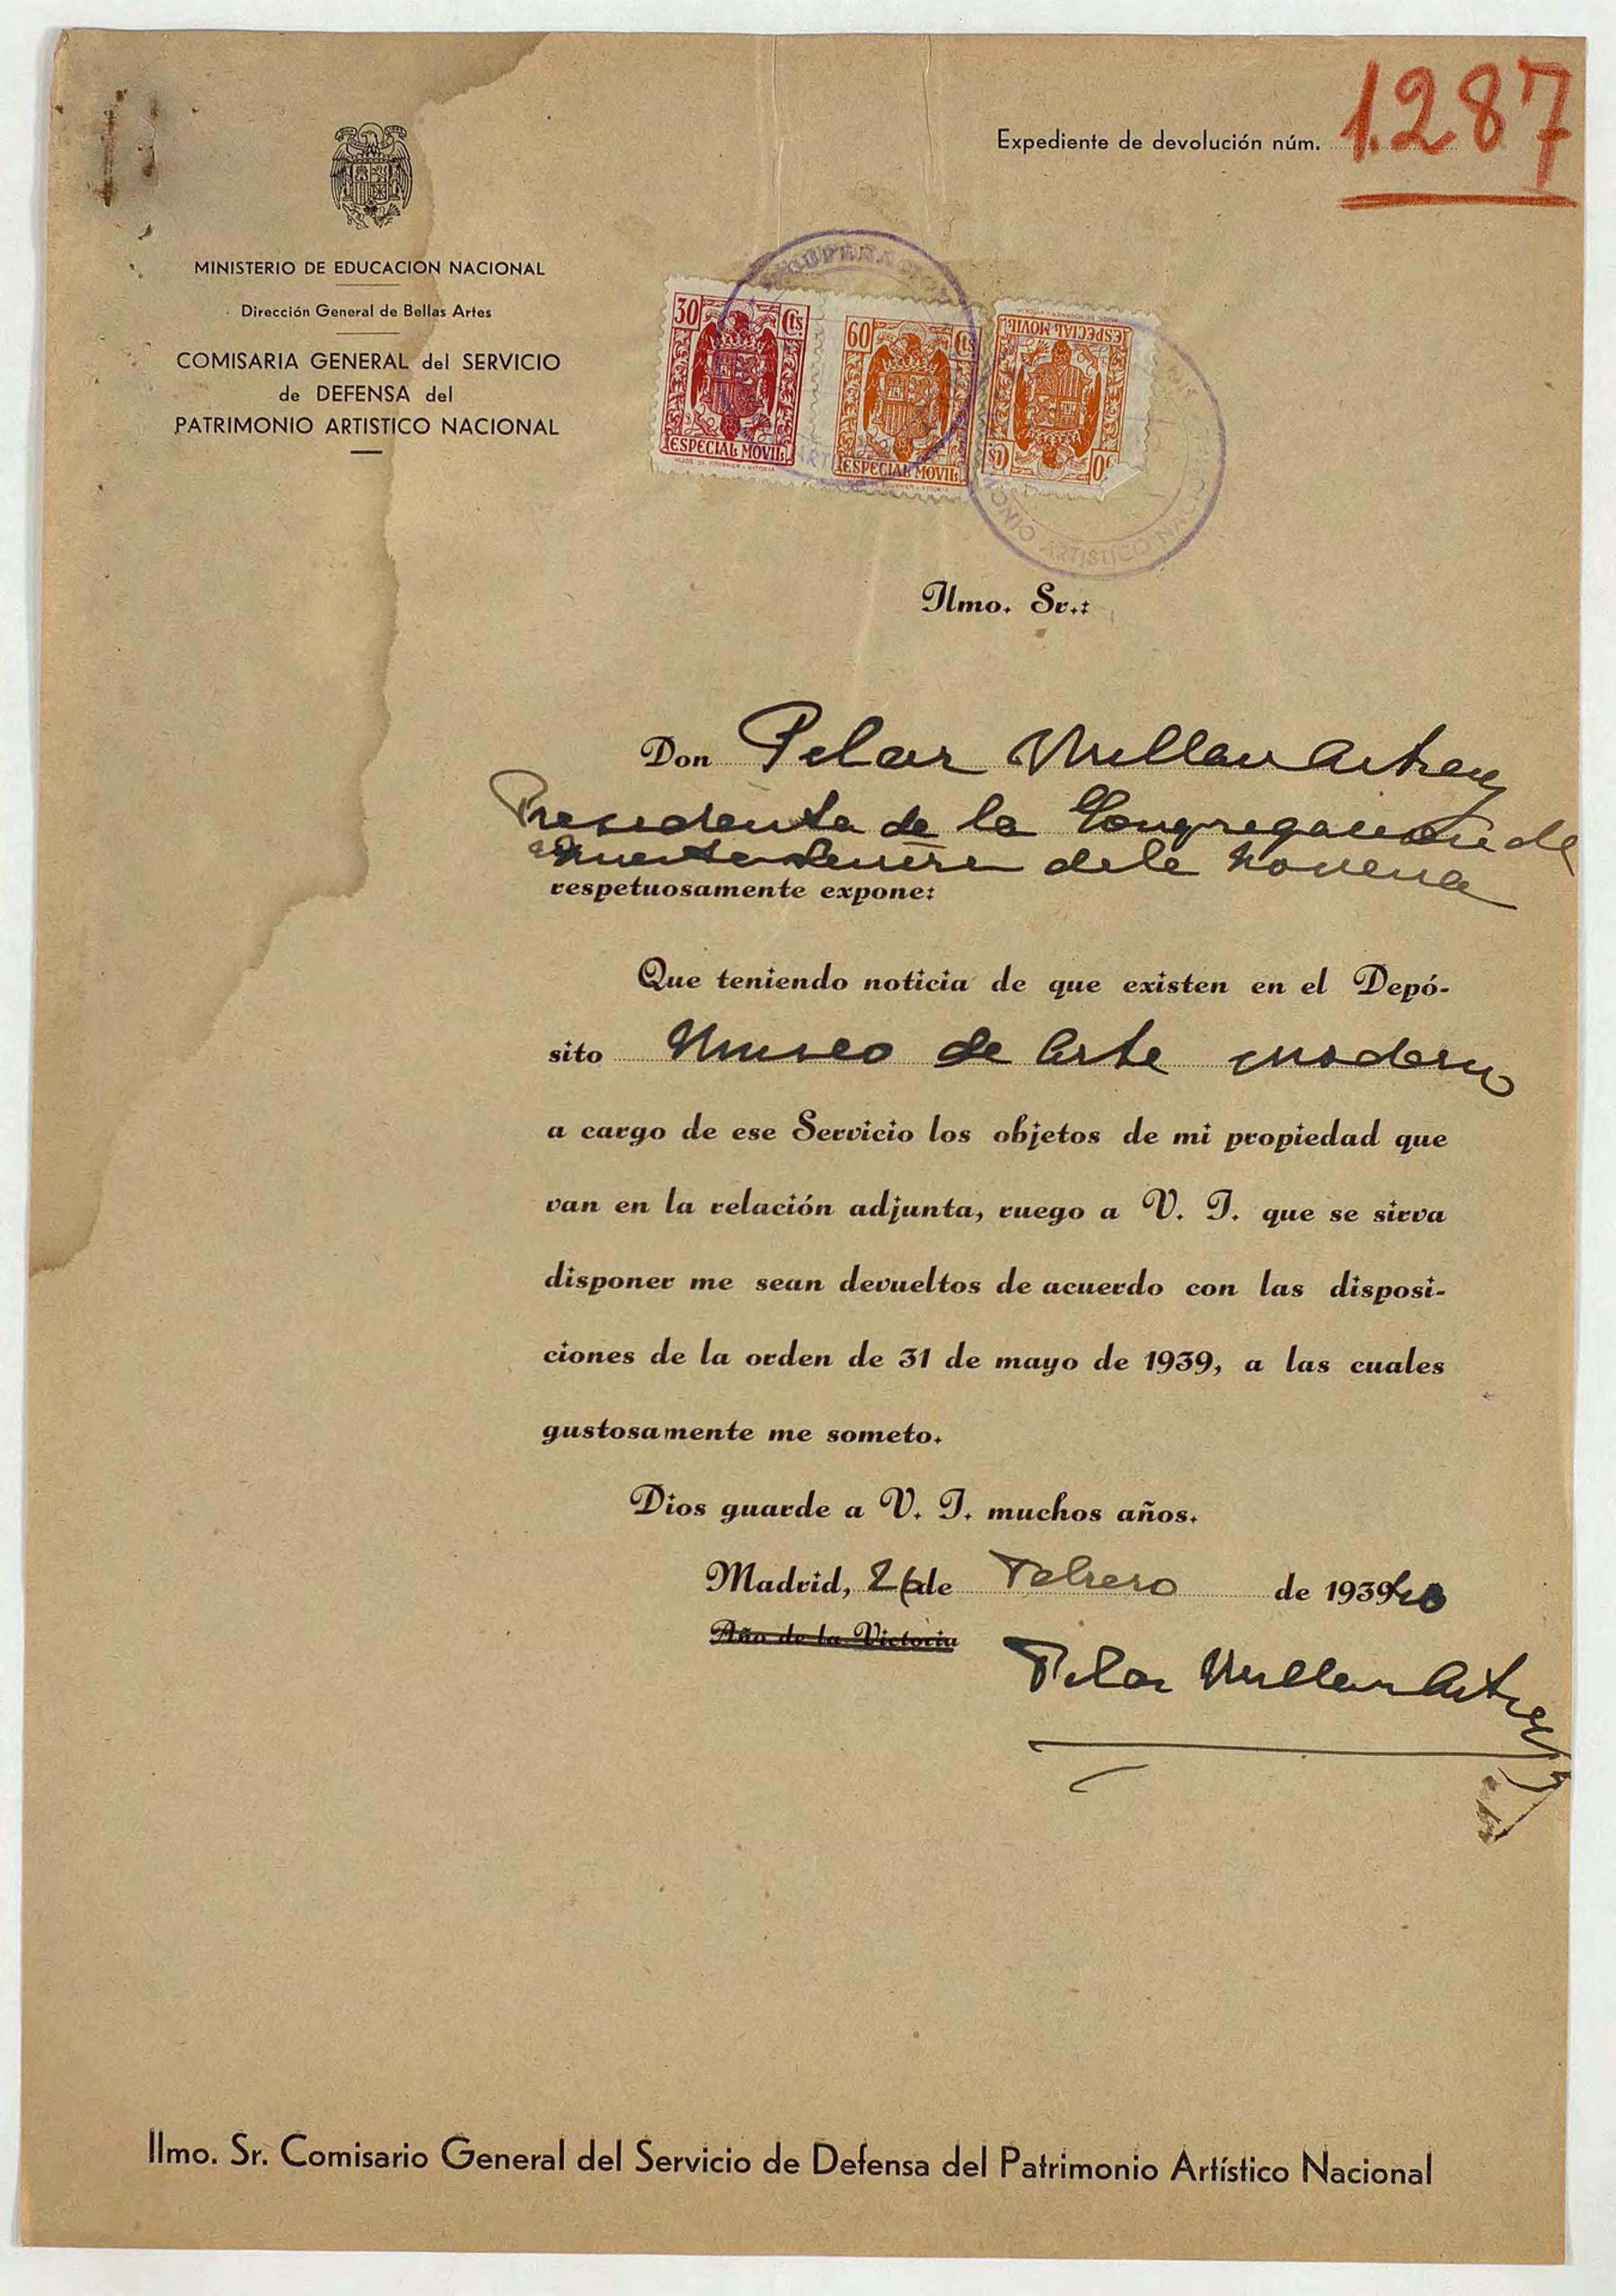 Expediente de devolución núm. 1.287
MINISTERIO DE EDUCACION NACIONAL
Dirección General de Bellas Artes
COMISARIA GENERAL del SERVICIO
de DEFENSA del
PATRIMONIO ARTISTICO NACIONAL
30 Cts
ESPECIAL MOVIL
60 Cts
ESPECIAL MOVIL
ESPECIAL MOVIL
ARTISTICO NAC
Ilmo. Sr.:
Don Pilar Millan Astray
Presidenta de la Congregación de
nuestra Señora de la Novena
respetuosamente expone:
Que teniendo noticia de que existen en el Depó-
sito Museo de Arte moderno
a cargo de ese Servicio los objetos de mi propiedad que
van en la relación adjunta, ruego a V. I. que se sirva
disponer me sean devueltos de acuerdo con las disposi-
ciones de la orden de 31 de mayo de 1939, a las cuales
gustosamente me someto.
Dios guarde a V. I. muchos años.
Madrid, 26 de Febrero de 1939 40
Año de la Victoria
Pilar Millan Astray
Ilmo. Sr. Comisario General del Servicio de Defensa del Patrimonio Artístico Nacional